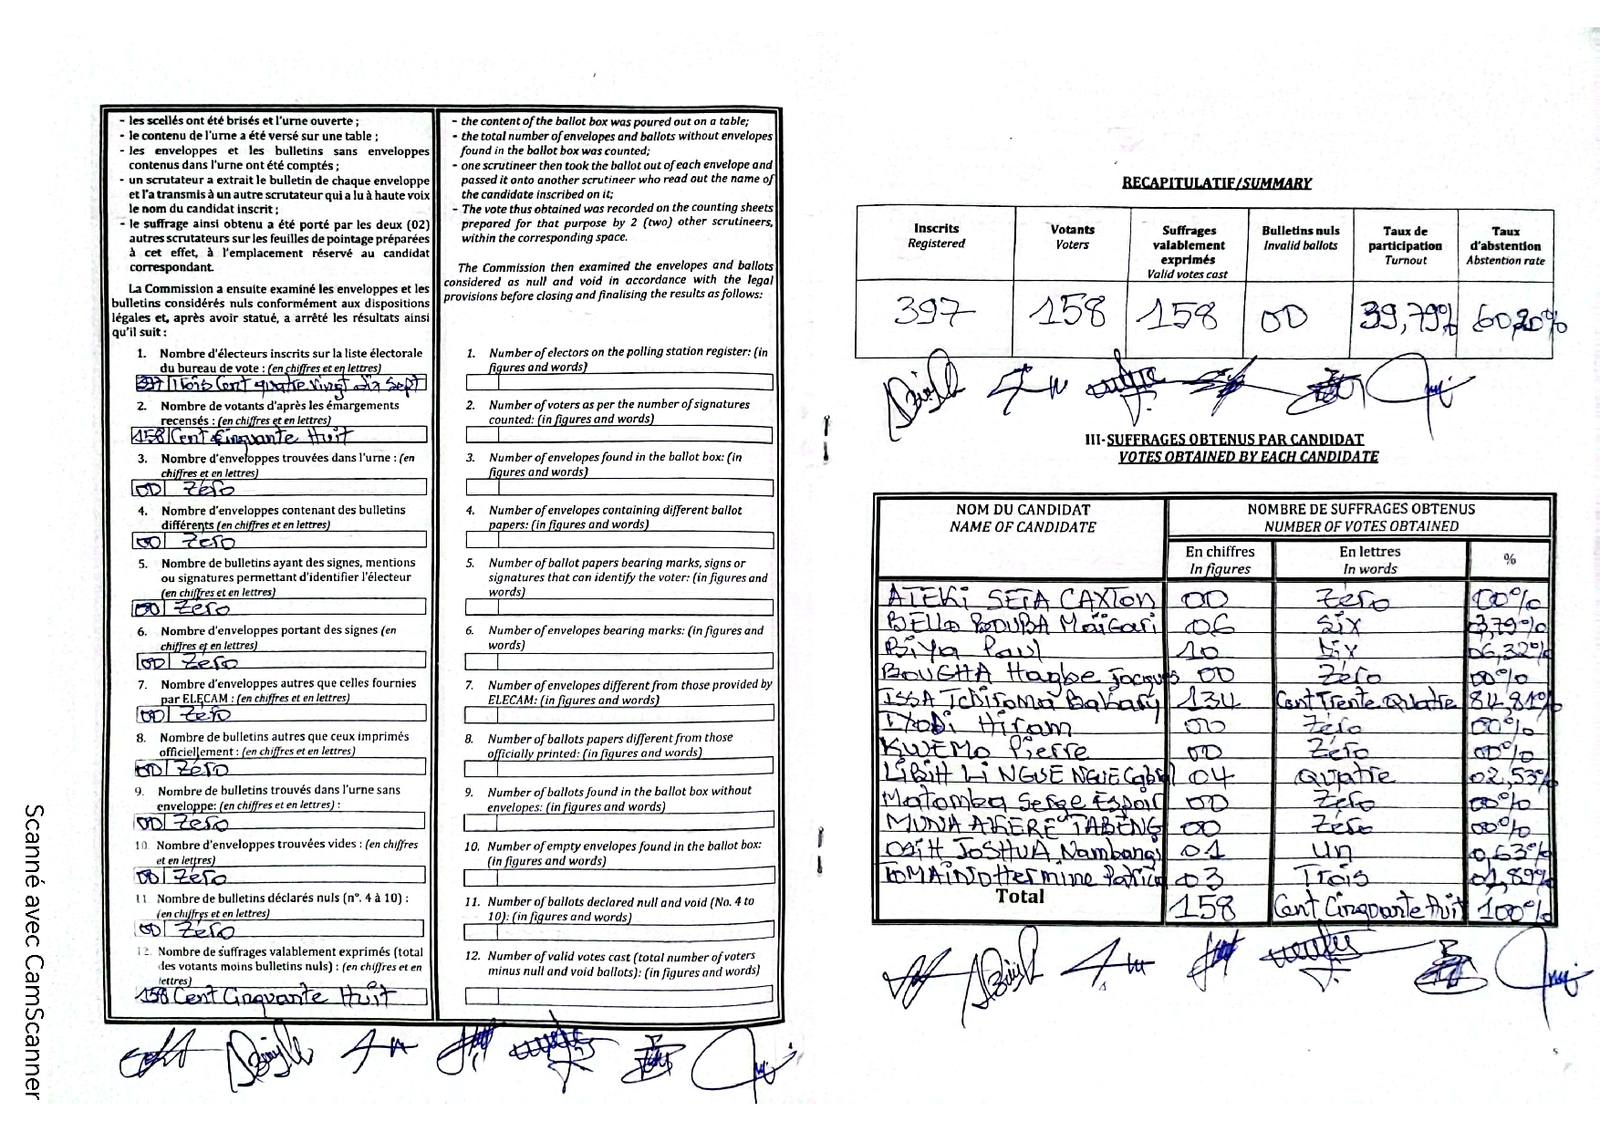 - les scellés ont été brisés et l'urne ouverte ;
- le contenu de l'urne a été versé sur une table ;
- les enveloppes et les bulletins sans enveloppes
contenus dans l'urne ont été comptés ;
- un scrutateur a extrait le bulletin de chaque enveloppe
et l'a transmis à un autre scrutateur qui a lu à haute voix
le nom du candidat inscrit ;
- le suffrage ainsi obtenu a été porté par les deux (02)
autres scrutateurs sur les feuilles de pointage préparées
à cet effet, à l'emplacement réservé au candidat
correspondant.
La Commission a ensuite examiné les enveloppes et les
bulletins considérés nuls conformément aux dispositions
légales et, après avoir statué, a arrêté les résultats ainsi
qu'il suit :
1. Nombre d'électeurs inscrits sur la liste électorale
du bureau de vote : (en chiffres et en lettres)
397 Trois Cent quatre vingt dix Sept
2. Nombre de votants d'après les émargements
recensés : (en chiffres et en lettres)
158 Cent Cinquante Huit
3. Nombre d'enveloppes trouvées dans l'urne : (en
chiffres et en lettres)
00 Zéro
4. Nombre d'enveloppes contenant des bulletins
différents (en chiffres et en lettres)
00 Zéro
5. Nombre de bulletins ayant des signes, mentions
ou signatures permettant d'identifier l'électeur
(en chiffres et en lettres)
00 Zéro
6. Nombre d'enveloppes portant des signes (en
chiffres et en lettres)
00 Zéro
7. Nombre d'enveloppes autres que celles fournies
par ELECAM : (en chiffres et en lettres)
00 Zéro
8. Nombre de bulletins autres que ceux imprimés
officiellement : (en chiffres et en lettres)
00 Zéro
9. Nombre de bulletins trouvés dans l'urne sans
enveloppe: (en chiffres et en lettres) :
00 Zéro
10. Nombre d'enveloppes trouvées vides : (en chiffres
et en lettres)
00 Zéro
11. Nombre de bulletins déclarés nuls (n°. 4 à 10) :
(en chiffres et en lettres)
00 Zéro
12. Nombre de suffrages valablement exprimés (total
des votants moins bulletins nuls) : (en chiffres et en
lettres)
158 Cent Cinquante Huit
- the content of the ballot box was poured out on a table;
- the total number of envelopes and ballots without envelopes
found in the ballot box was counted;
- one scrutineer then took the ballot out of each envelope and
passed it onto another scrutineer who read out the name of
the candidate inscribed on it;
- The vote thus obtained was recorded on the counting sheets
prepared for that purpose by 2 (two) other scrutineers,
within the corresponding space.
The Commission then examined the envelopes and ballots
considered as null and void in accordance with the legal
provisions before closing and finalising the results as follows:
1. Number of electors on the polling station register: (in
figures and words)
2. Number of voters as per the number of signatures
counted: (in figures and words)
3. Number of envelopes found in the ballot box: (in
figures and words)
4. Number of envelopes containing different ballot
papers: (in figures and words)
5. Number of ballot papers bearing marks, signs or
signatures that can identify the voter: (in figures and
words)
6. Number of envelopes bearing marks: (in figures and
words)
7. Number of envelopes different from those provided by
ELECAM: (in figures and words)
8. Number of ballots papers different from those
officially printed: (in figures and words)
9. Number of ballots found in the ballot box without
envelopes: (in figures and words)
10. Number of empty envelopes found in the ballot box:
(in figures and words)
11. Number of ballots declared null and void (No. 4 to
10): (in figures and words)
12. Number of valid votes cast (total number of voters
minus null and void ballots): (in figures and words)
RECAPITULATIF/SUMMARY
Inscrits Votants Suffrages valablement exprimés Bulletins nuls Taux de participation Taux d'abstention
Registered Voters Valid votes cast Invalid ballots Turnout Abstention rate
397 158 158 00 39,79% 60,20%
III-SUFFRAGES OBTENUS PAR CANDIDAT
VOTES OBTAINED BY EACH CANDIDATE
NOM DU CANDIDAT NOMBRE DE SUFFRAGES OBTENUS
NAME OF CANDIDATE NUMBER OF VOTES OBTAINED
En chiffres En lettres %
In figures In words
ATEKI SETA CAXTON 00 Zéro 00%
BELLO BOUBA Maïgari 06 Six 3,79%
Biya Paul 10 Dix 06,32%
BOUGHA Hagbe Jacques 00 Zéro 00%
ISSA Tchiroma Bakary 134 Cent Trente Quatre 84,81%
IYODI Hiram 00 Zéro 00%
KWEMO Pierre 00 Zéro 00%
LIBIH LI NGUE NGUE Cabral 04 Quatre 02,53%
Matomba Serge Espoir 00 Zéro 00%
MUNA AKERE TABENG 00 Zéro 00%
OSIH JOSHUA Nambangi 01 Un 0,63%
TOMAINO Hermine Patricia 03 Trois 01,89%
Total 158 Cent Cinquante Huit 100%
Scanné avec CamScanner